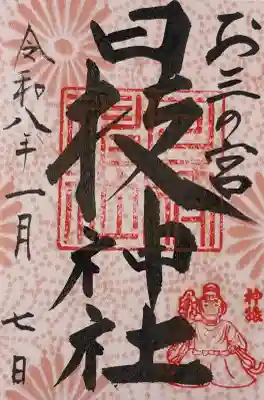 お三の宮
日枝神社
令和八年一月
七日
神猿